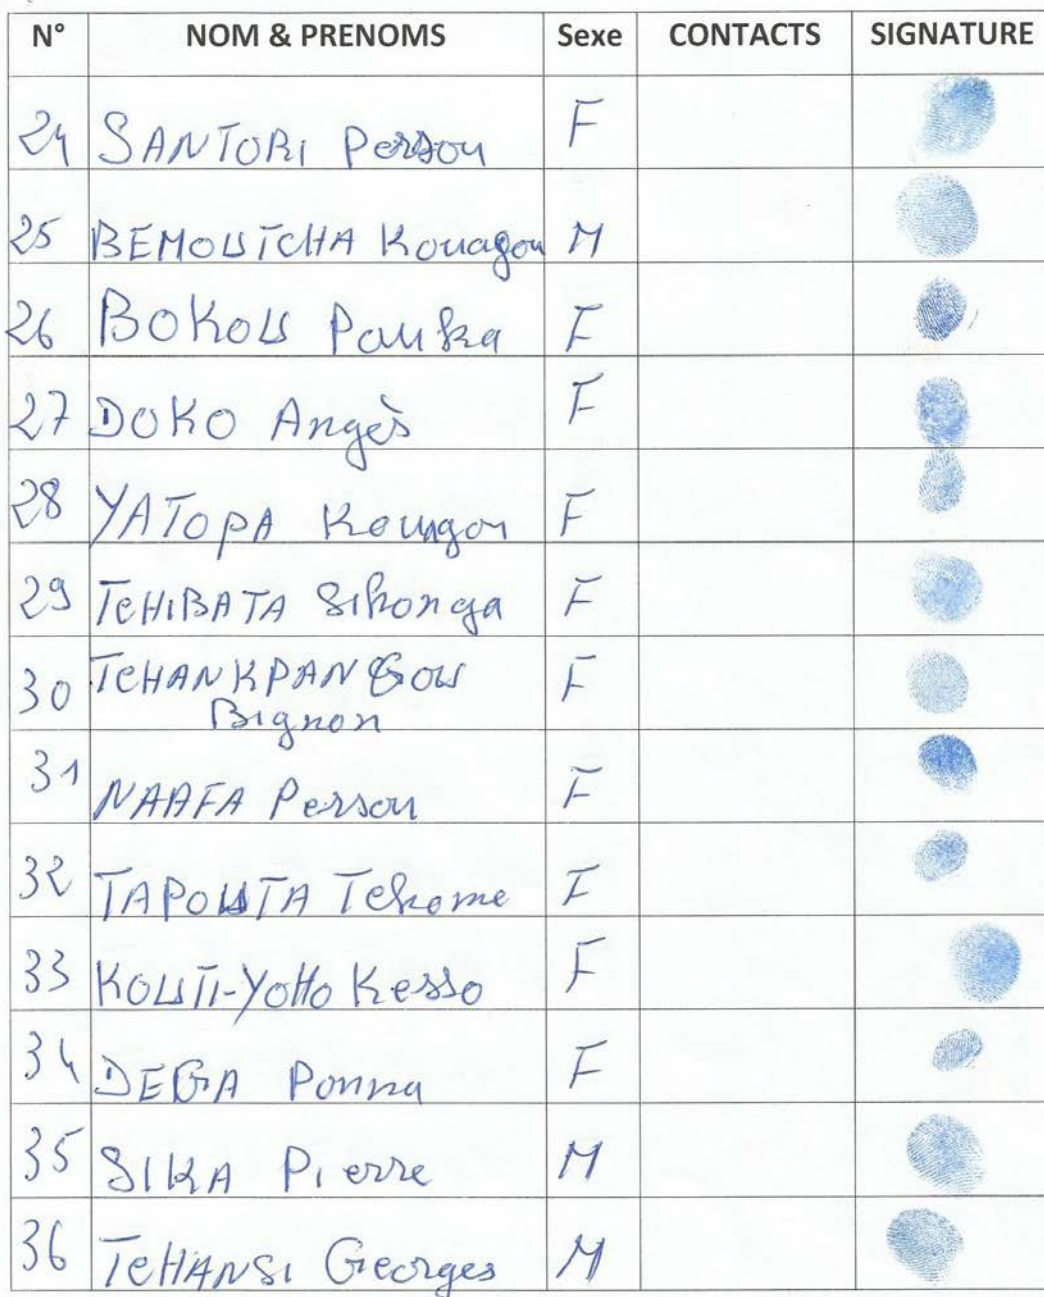 N° NOM & PRENOMS Sexe CONTACTS SIGNATURE
24 SANTORI Persou F
25 BEMOUTCHA Kouagou M
26 BOKOU Pauka F
27 DOKO Angès F
28 YATOPA Koungou F
29 TCHIBATA Sikonga F
30 TCHANKPANGOU F
Bignon
31 NAAFA Persou F
32 TAPOUTA Tchome F
33 KOUTI-YOHO Kesso F
34 DEGA Ponna F
35 SIKA Pierre M
36 TCHANSI Georges M